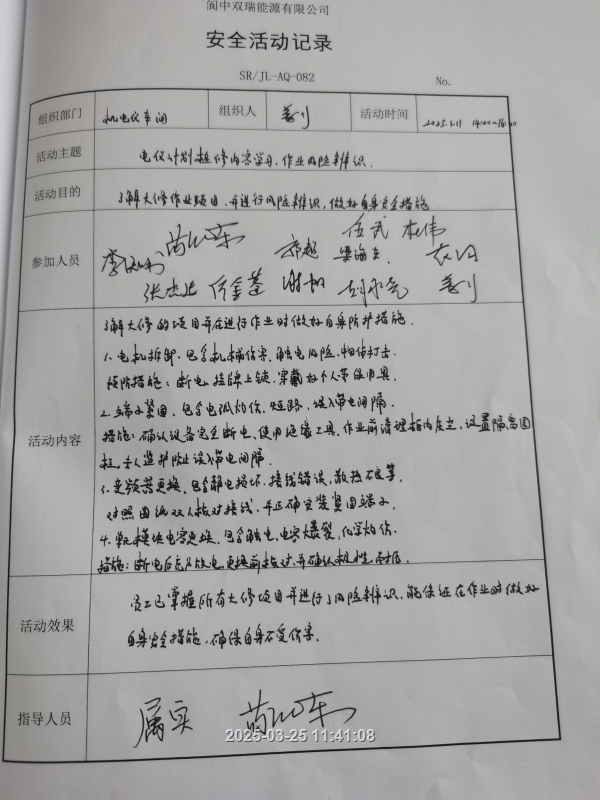 阆中双瑞能源有限公司
安全活动记录
SR/JL-AQ-082 No.
组织部门 机电仪车间 组织人 活动时间 2025.
活动主题 电仪计划检修内容学习、作业风险辨识.
活动目的 了解大修作业项目,并进行风险辨识,做好自身安全措施
伍武 杜伟
参加人员
张杰
了解大修的项目并在进行作业时做好自身防护措施.
1、电机拆卸:包含机械伤害、触电风险、物体打击
预防措施:断电、挂牌上锁、穿戴好个人劳保用具.
2、端子紧固、包含电弧灼伤、短路、误入带电间隔
活动内容 措施:确认设备完全断电、使用绝缘工具、作业前清理柜内灰尘,设置隔离围
栏,专人监护防止误入带电间隔
3、变频器更换、包含静电损坏、接线错误,散热不良等
对照图纸双人核对接线,并正确安装紧固端子
4、单元模块电容更换、包含触电、电容爆裂,化学灼伤
措施:断电后充分放电,更换前核对,并确认极性
员工已掌握所有大修项目并进行了风险辨识,能保证在作业时做好
活动效果 自身安全措施,确保自身不受伤害.
指导人员 属实
2025-03-25 11:41:08